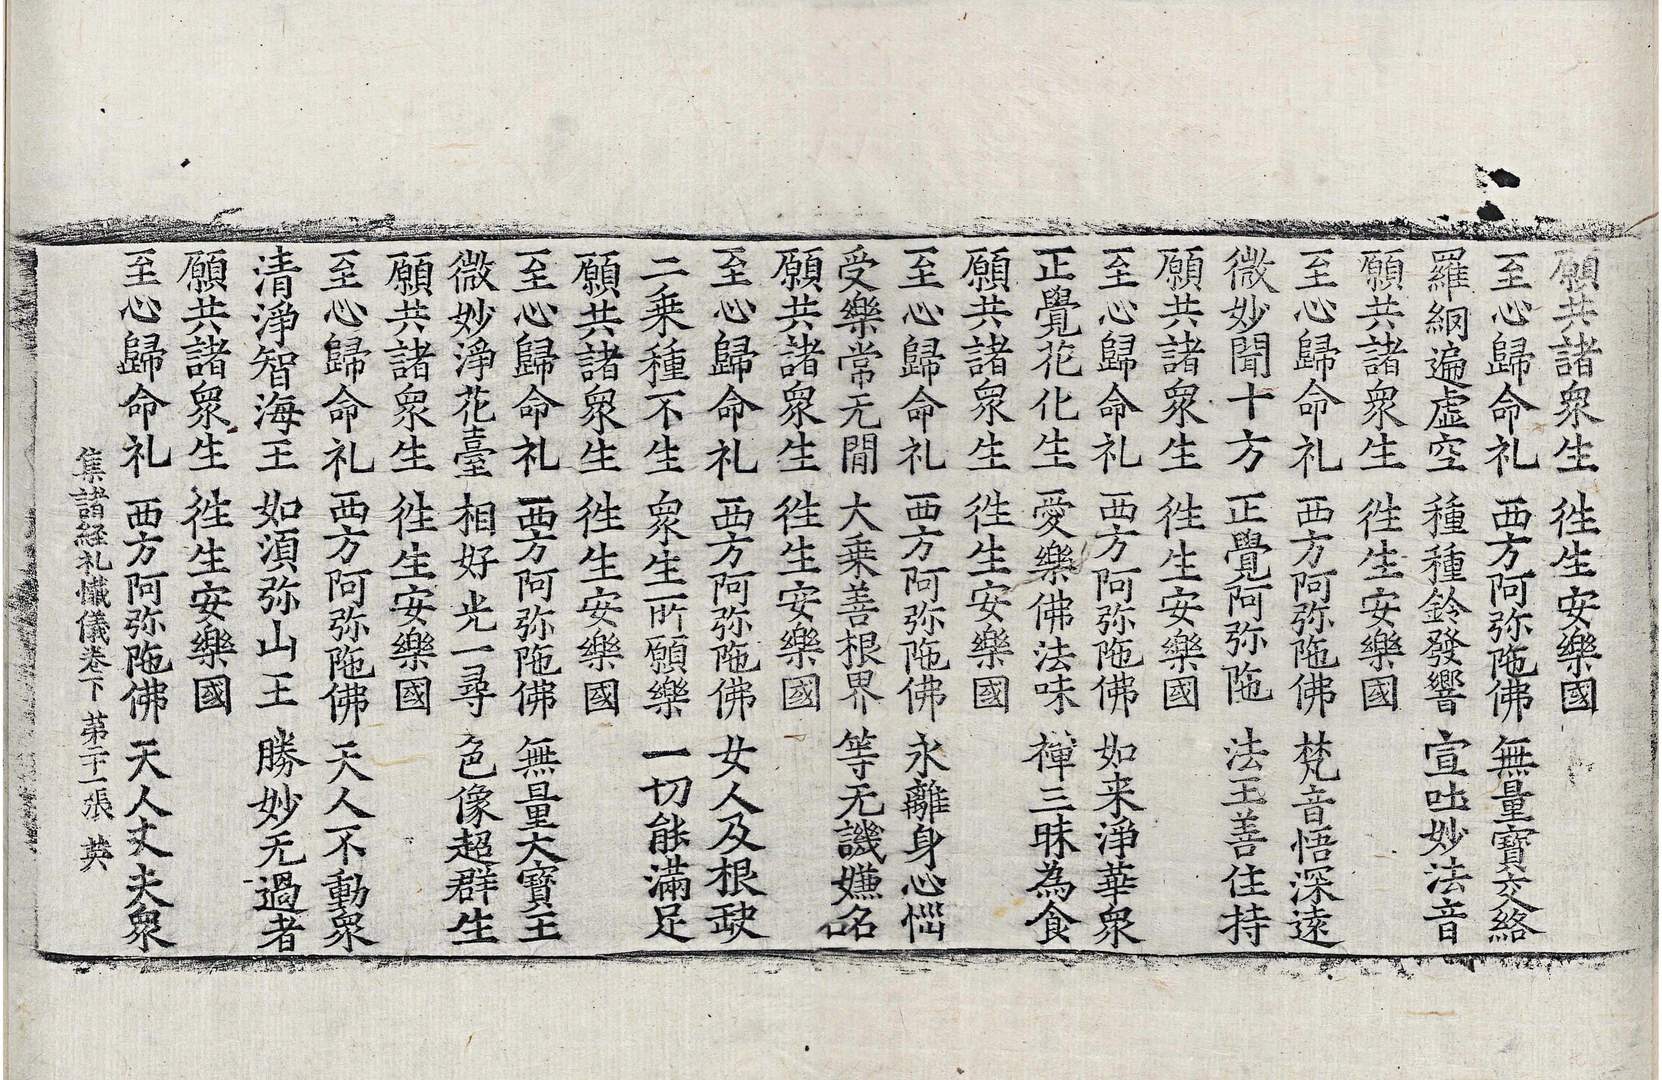 願共諸衆生 往生安樂國
至心歸命礼 西方阿弥陁佛 無量寶交絡
羅網遍虛空 種種鈴發響 宣吐妙法音
願共諸衆生 往生安樂國
至心歸命礼 西方阿弥陁佛 梵音悟深遠
微妙聞十方 正覺阿弥陁 法王善住持
願共諸衆生 往生安樂國
至心歸命礼 西方阿弥陁佛 如来淨華衆
正覺花化生 愛樂佛法味 禪三昧為食
願共諸衆生 往生安樂國
至心歸命礼 西方阿弥陁佛 永離身心惱
受樂常无閒 大乗善根界 等无譏嫌名
願共諸衆生 往生安樂國
至心歸命礼 西方阿弥陁佛 女人及根缺
二乗種不生 衆生所願樂 一切能滿足
願共諸衆生 往生安樂國
至心歸命礼 西方阿弥陁佛 無量大寶王
微妙淨花臺 相好光一尋 色像超群生
願共諸衆生 往生安樂國
至心歸命礼 西方阿弥陁佛 天人不動衆
清淨智海王 如湏弥山王 勝妙无過者
願共諸衆生 往生安樂國
至心歸命礼 西方阿弥陁佛 天人丈夫衆
集諸経礼懺儀卷下 第二十一張 英